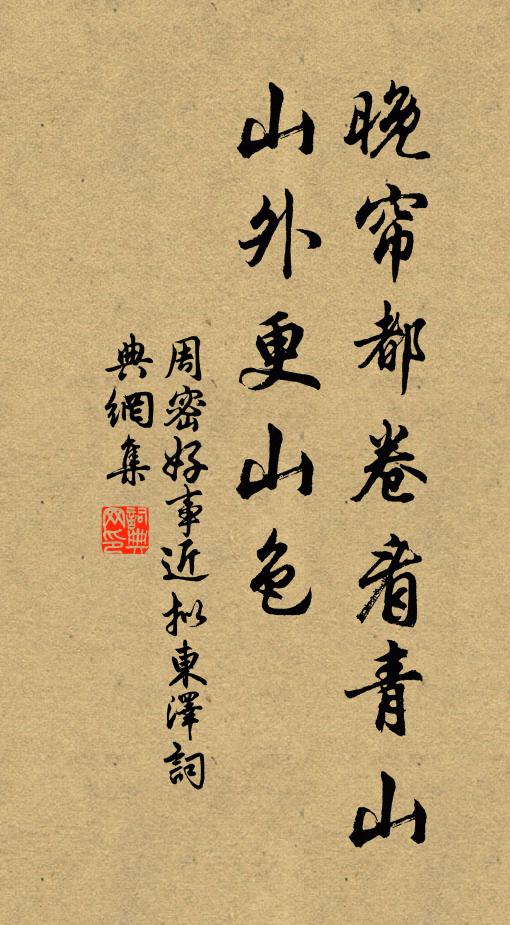 晚帘都卷看青山
山外更山色
周密好事近拟東澤詞
典網集
詞典網印